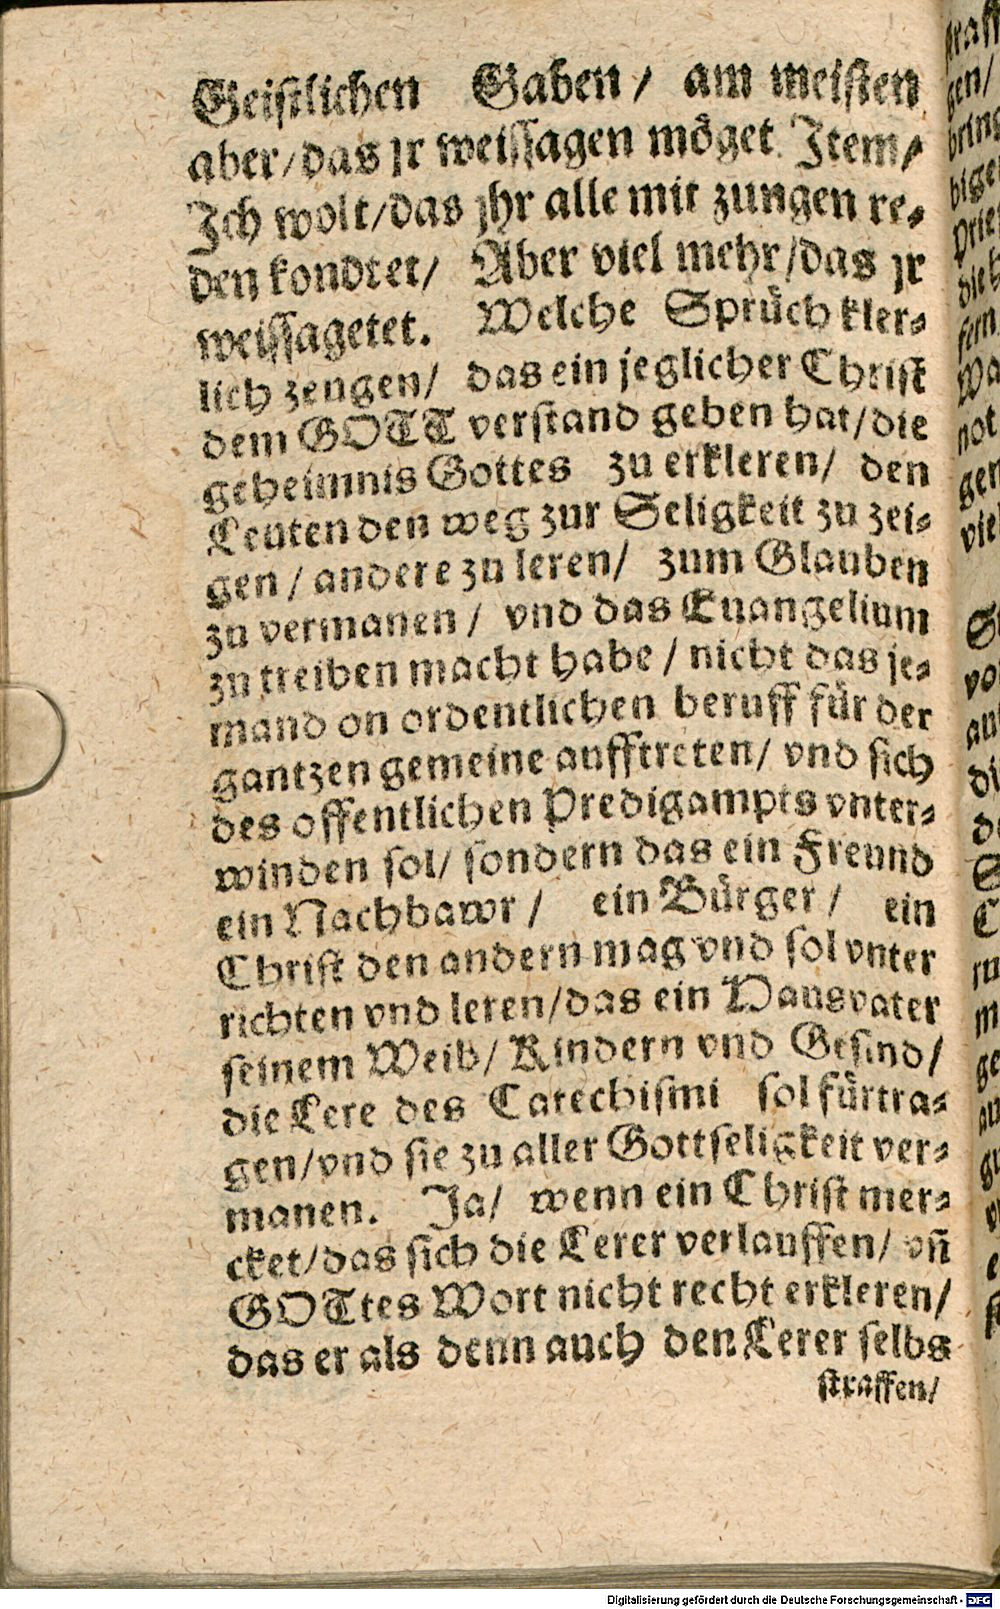 Geiſtlichen Gaben / am meiſten
aber/das jr weiſſagen möget. Item/
Ich wolt/das jhr alle mit zungen re⸗
den kondtet/ Aber viel mehr/das jr
weiſſagetet. Welche Sprüch kler⸗
lich zeugen/ das ein jeglicher Chriſt
dem GOTT verſtand geben hat/die
geheimnis Gottes zu erkleren/ den
Leuten den weg zur Seligkeit zu zei⸗
gen / andere zu leren/ zum Glauben
zu vermanen / vnd das Euangelium
zu treiben macht habe / nicht das je⸗
mand on ordentlichen beruff für der
gantzen gemeine aufftreten/ vnd ſich
des offentlichen Predigampts vnter⸗
winden ſol/ ſondern das ein Freund
ein Nachbawr / ein Bürger / ein
Chriſt den andern mag vnd ſol vnter
richten vnd leren/das ein Hausvater
ſeinem Weib/ Kindern vnd Geſind/
die Lere des Catechiſmi ſol fürtra⸗
gen/vnd ſie zu aller Gottſeligkeit ver⸗
manen. Ja/ wenn ein Chriſt mer⸗
cket/das ſich die Lerer verlauffen/ vn̄
GOTtes Wort nicht recht erkleren/
das er als denn auch den Lerer ſelbs
ſtraffen/
Digitalisierung gefördert durch die Deutsche Forschungsgemeinschaft - DFG